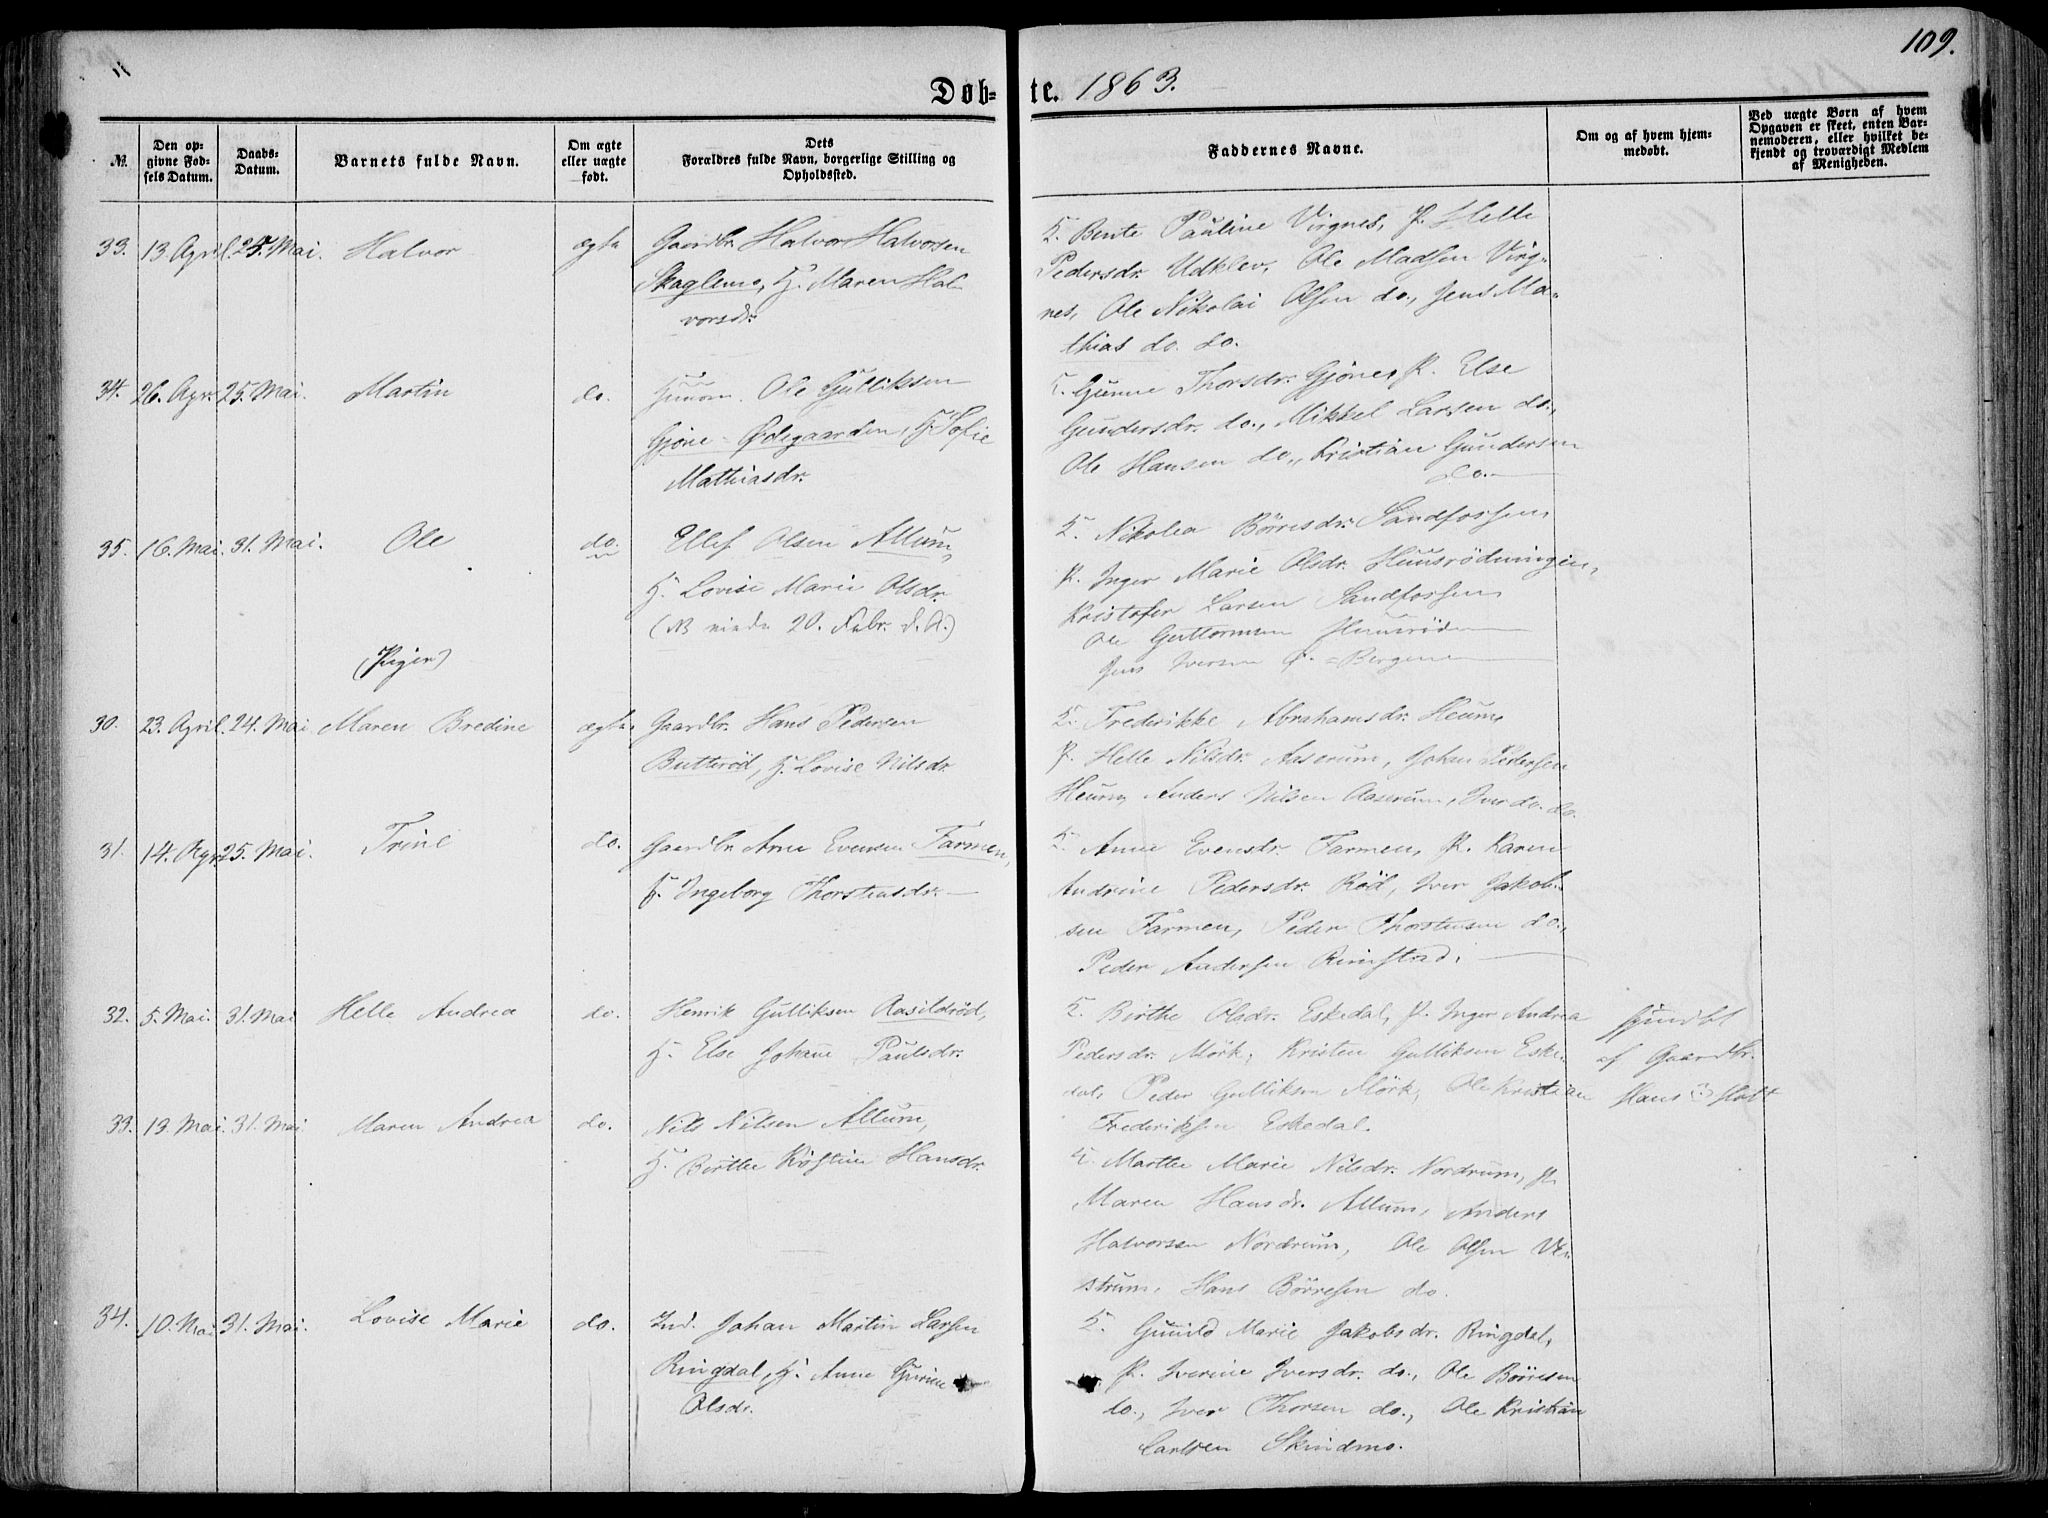 109.
Døb- te. 1863.
№.
Den op-
givne Fød-
sels Datum.
Daabs-
Datum.
Barnets fulde Navn.
Om ægte
eller uægte
født.
Dets
Forældres fulde Navn, borgerlige Stilling og
Opholdssted.
Faddernes Navne.
Om og af hvem hjem-
medøbt.
Ved uægte Børn af hvem
Opgaven er skeet, enten Bar-
nemoderen, eller hvilket be-
kjendt og troværdigt Medlem
af Menigheden.
33. 13. April. 25. Mai. Halvor ægte
Gaardbr. Halvor Halvorsen
Skaglemo, H. Maren Hal-
vorsdr.
Bente Pauline Virgnes, P. Helle
Pedersdr. Udklev, Ole Madsen Virg-
nes, Ole Nikolai Olsen do., Jens Ma-
thias do. do.
34. 26. Apr. 25. Mai. Martin do.
Huusm. Ole Gulliksen
Gjøne-Ødegaarden, H. Sofie
Mathiasdr.
Gunne Thorsdr. Gjøne, P. Else
Gundersdr. do., Mikkel Larsen do.,
Ole Hansen do., Kristian Gundersen
do.
35. 16. Mai. 31. Mai. Ole do.
Ellef Olsen Allum,
H. Lovise Marie Olsdr.
(NB 20. Febr. d. A.)
Nikolea Börresdr. Sandfossen
P. Inger Marie Olsdr. Huusrödningen,
Kristofer Larsen Sandfossen
Ole Guttormsen
Jens Iversen Ø.-Bergene
(Piger)
30. 23. April. 24. Mai Maren Bredine ægte.
Gaardbr. Hans Pedersen
Butteröd, H. Lovise Nilsdr.
Frederikke Abrahamsdr. Heum,
P. Helle Nilsdr. Aaserum, Johan Pedersen
Heum, Anders Nilsen Aaserum, Iver do. do.
31. 14. Apr. 25. Mai. Trine do.
Gaardbr. Arne Evensen Farmen,
H. Ingeborg Thorstensdr.
Anne Evensdr. Farmen, P. Karen
Andrine Pedersdr. Röd, Iver Jakob-
sen Farmen, Peder Thorstensen do.,
Peder Andersen Rimstad.
32. 5. Mai. 31. Mai Helle Andrea do.
Henrik Gulliksen Aasildröd,
H. Else Johane Paulsdr.
Birthe Olsdr. Eskedal, P. Inger Andrea
Pedersdr. Mörk, Kristen Gulliksen Eske-
dal, Peder Gulliksen Mörk, Ole Kristian
Frederiksen Eskedal.
hjmdbt
af Gaardbr.
Hans Holt
33. 13. Mai. 31. Mai. Maren Andrea do.
Nils Nilsen Allum,
H. Birthe Kristine Hansdr.
Marthe Marie Nilsdr. Nordrum, P.
Maren Hansdr. Allum, Anders
Halvorsen Nordrum, Ole Olsen Ve-
strum, Hans Börresen do.
34. 10. Mai 31. Mai. Lovise Marie do.
Ind. Johan Martin Larsen
Ringdal, H. Anne Gurine
Olsdr.
Gunild Marie Jakobsdr. Ringdal,
P. Iverine Iversdr. do., Ole Börresen
do., Iver Thorsen do., Ole Kristian
Carlsen Skindmo.